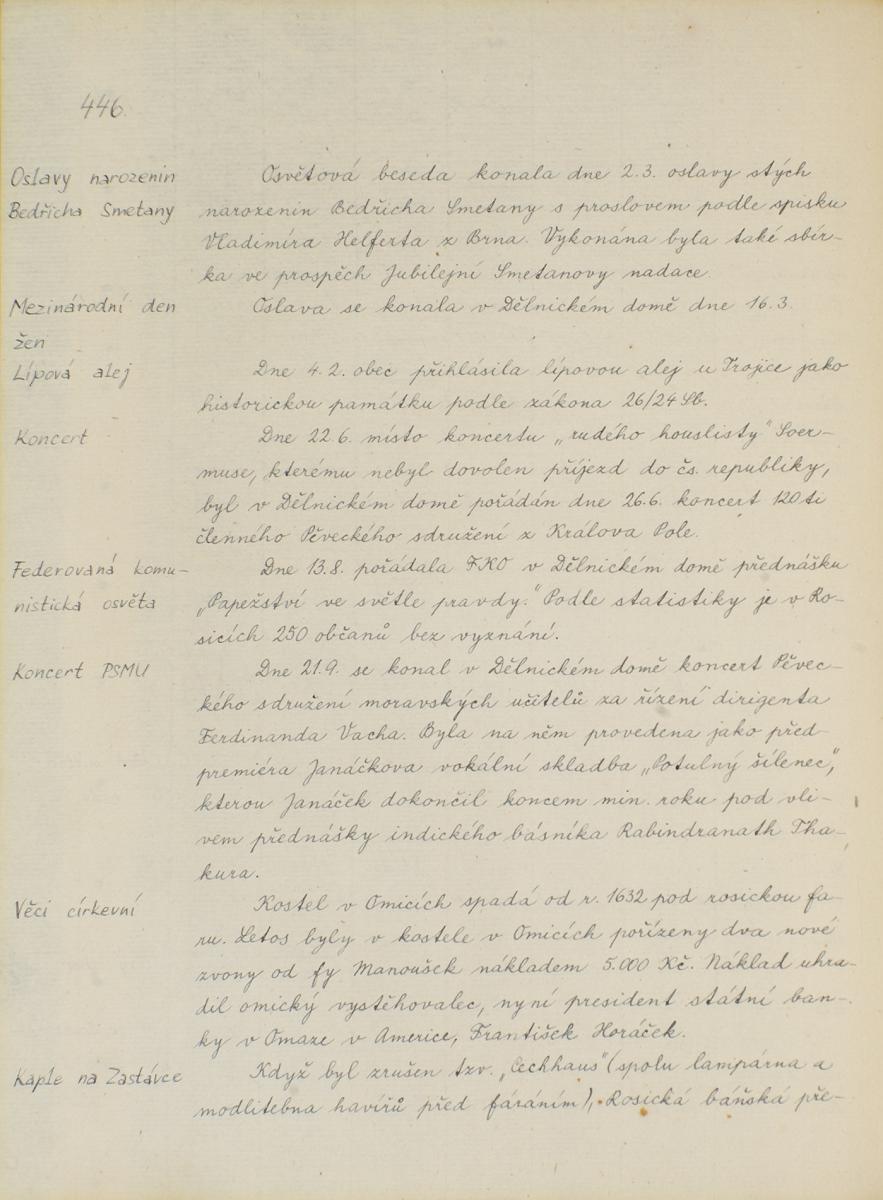 446.
Oslavy narozenin
Bedřicha Smetany
Osvětová beseda konala dne 2.3. oslavy stých
narozenin Bedřicha Smetany s proslovem podle spisku
Vladimíra Helferta z Brna. Vykonána byla také sbír-
ka ve prospěch Jubilejní Smetanovy nadace.
Mezinárodní den
žen
Oslava se konala v Dělnickém domě dne 16.3.
Lípová alej
Dne 4.2. obec přihlásila lípovou alej u Trojice jako
historickou památku podle zákona 26/24 Sb.
Koncert
Dne 22.6. místo koncertu „rudého houslisty" Soer-
muse, kterému nebyl dovolen příjezd do čs. republiky,
byl v Dělnickém domě pořádán dne 26.6. koncert 120 ti
členného Pěveckého sdružení z Králova Pole.
Federovaná komu-
nistická osvěta
Dne 13.8. pořádala FKO v Dělnickém domě přednášku
„Papežství ve světle pravdy." Podle statistiky je v Ro-
sicích 250 občanů bez vyznání.
Koncert PSMU
Dne 21.9. se konal v Dělnickém domě koncert Pěvec-
kého sdružení moravských učitelů za řízení dirigenta
Ferdinanda Vacha. Byla na něm provedena jako před-
premiéra Janáčkova vokální skladba „Potulný šílenec",
kterou Janáček dokončil koncem min. roku pod vli-
vem přednášky indického básníka Rabindranath Tha-
kura.
Věci církevní
Kostel v Omicích spadá od r. 1632 pod rosickou fa-
ru. Letos byly v kostele v Omicích pořízeny dva nové
zvony od fy Manoušek nákladem 5.000 Kč. Náklad uhra-
dil omický vystěhovalec, nyní president státní ban-
ky v Omaze v Americe, František Horáček.
Kaple na Zastávce
Když byl zrušen tzv. „Cechhaus" (spolu lampárna a
modlitebna havířů před fáráním), Rosická báňská pře-